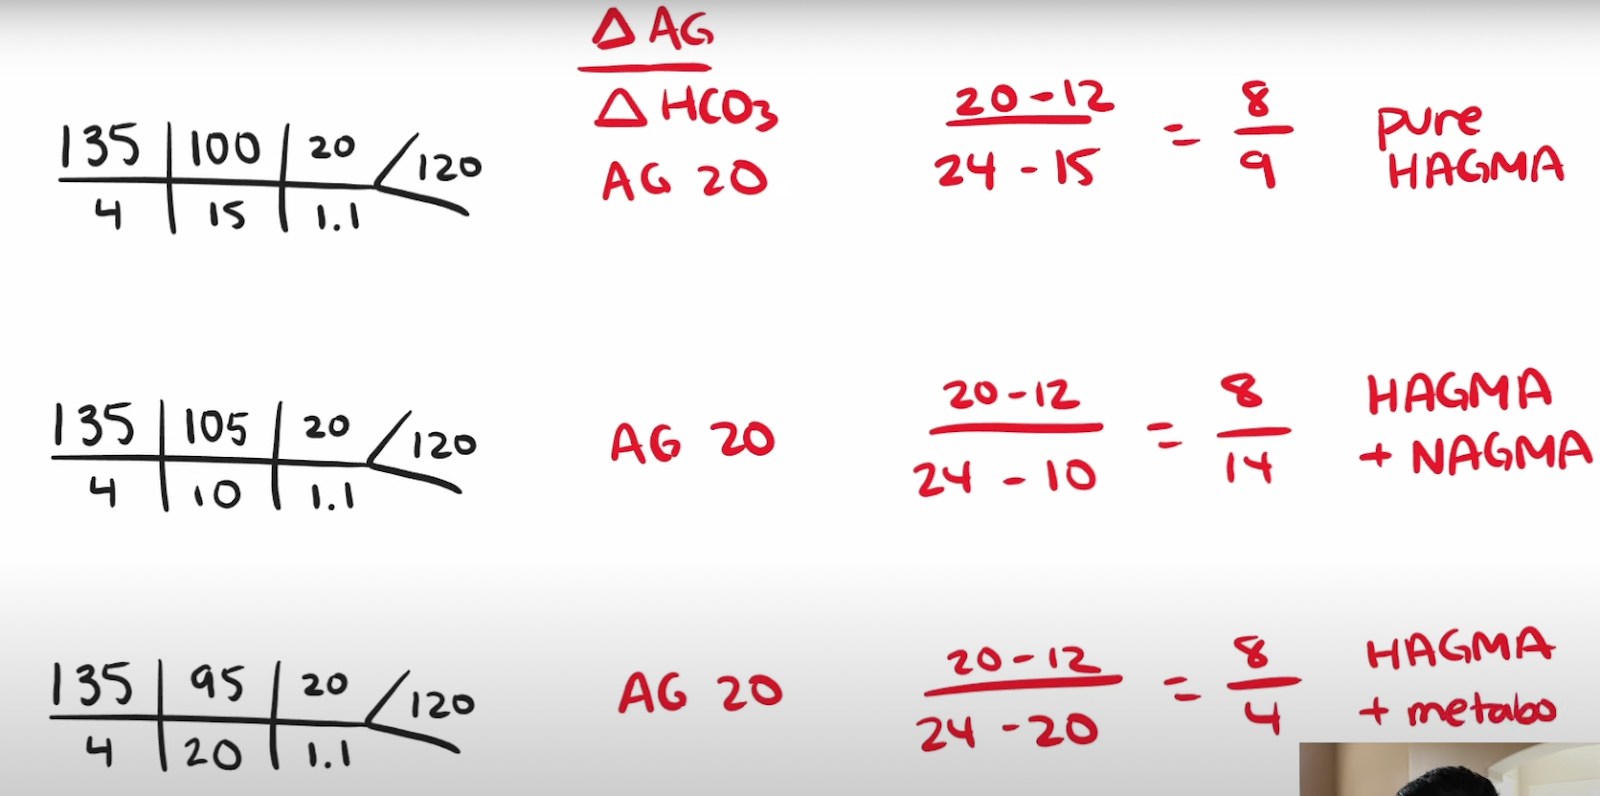 Δ AG
Δ HCO3
135 | 100 | 20 / 120
4 | 15 | 1.1
AG 20
20 - 12
24 - 15
= 8
9
pure
HAGMA
135 | 105 | 20 / 120
4 | 10 | 1.1
AG 20
20 - 12
24 - 10
= 8
14
HAGMA
+ NAGMA
135 | 95 | 20 / 120
4 | 20 | 1.1
AG 20
20 - 12
24 - 20
= 8
4
HAGMA
+ metabo